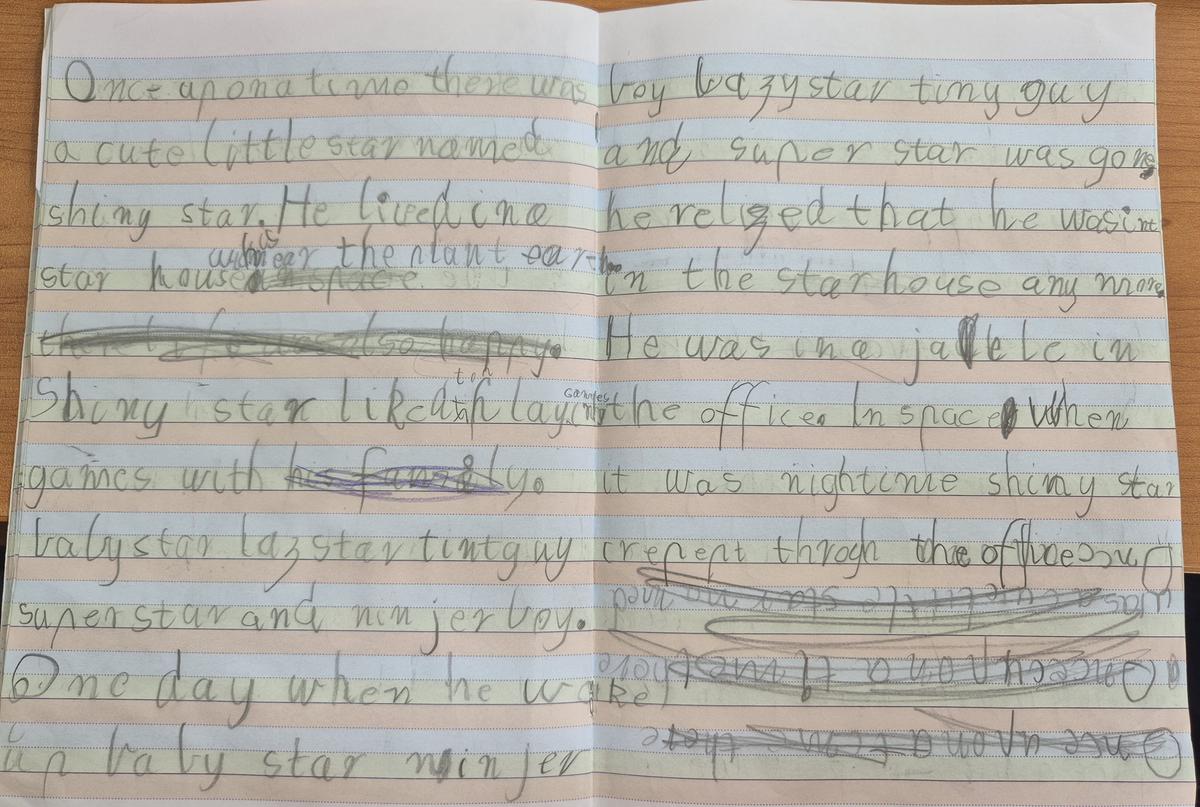 Once apona time there was
a cute little star named
shiny star. He lived in a
with his near the plant earth
star house
Shiny star like to play
games
games with
baby star lazy star tint guy
super star and ninjer boy.
One day when he wake
up baby star ninjer
boy lazy star tiny guy
and super star was gone
he relized that he was int
in the star house any more
He was in a jale in
the office. In space When
it was nightime shiny star
crepent throgh the office